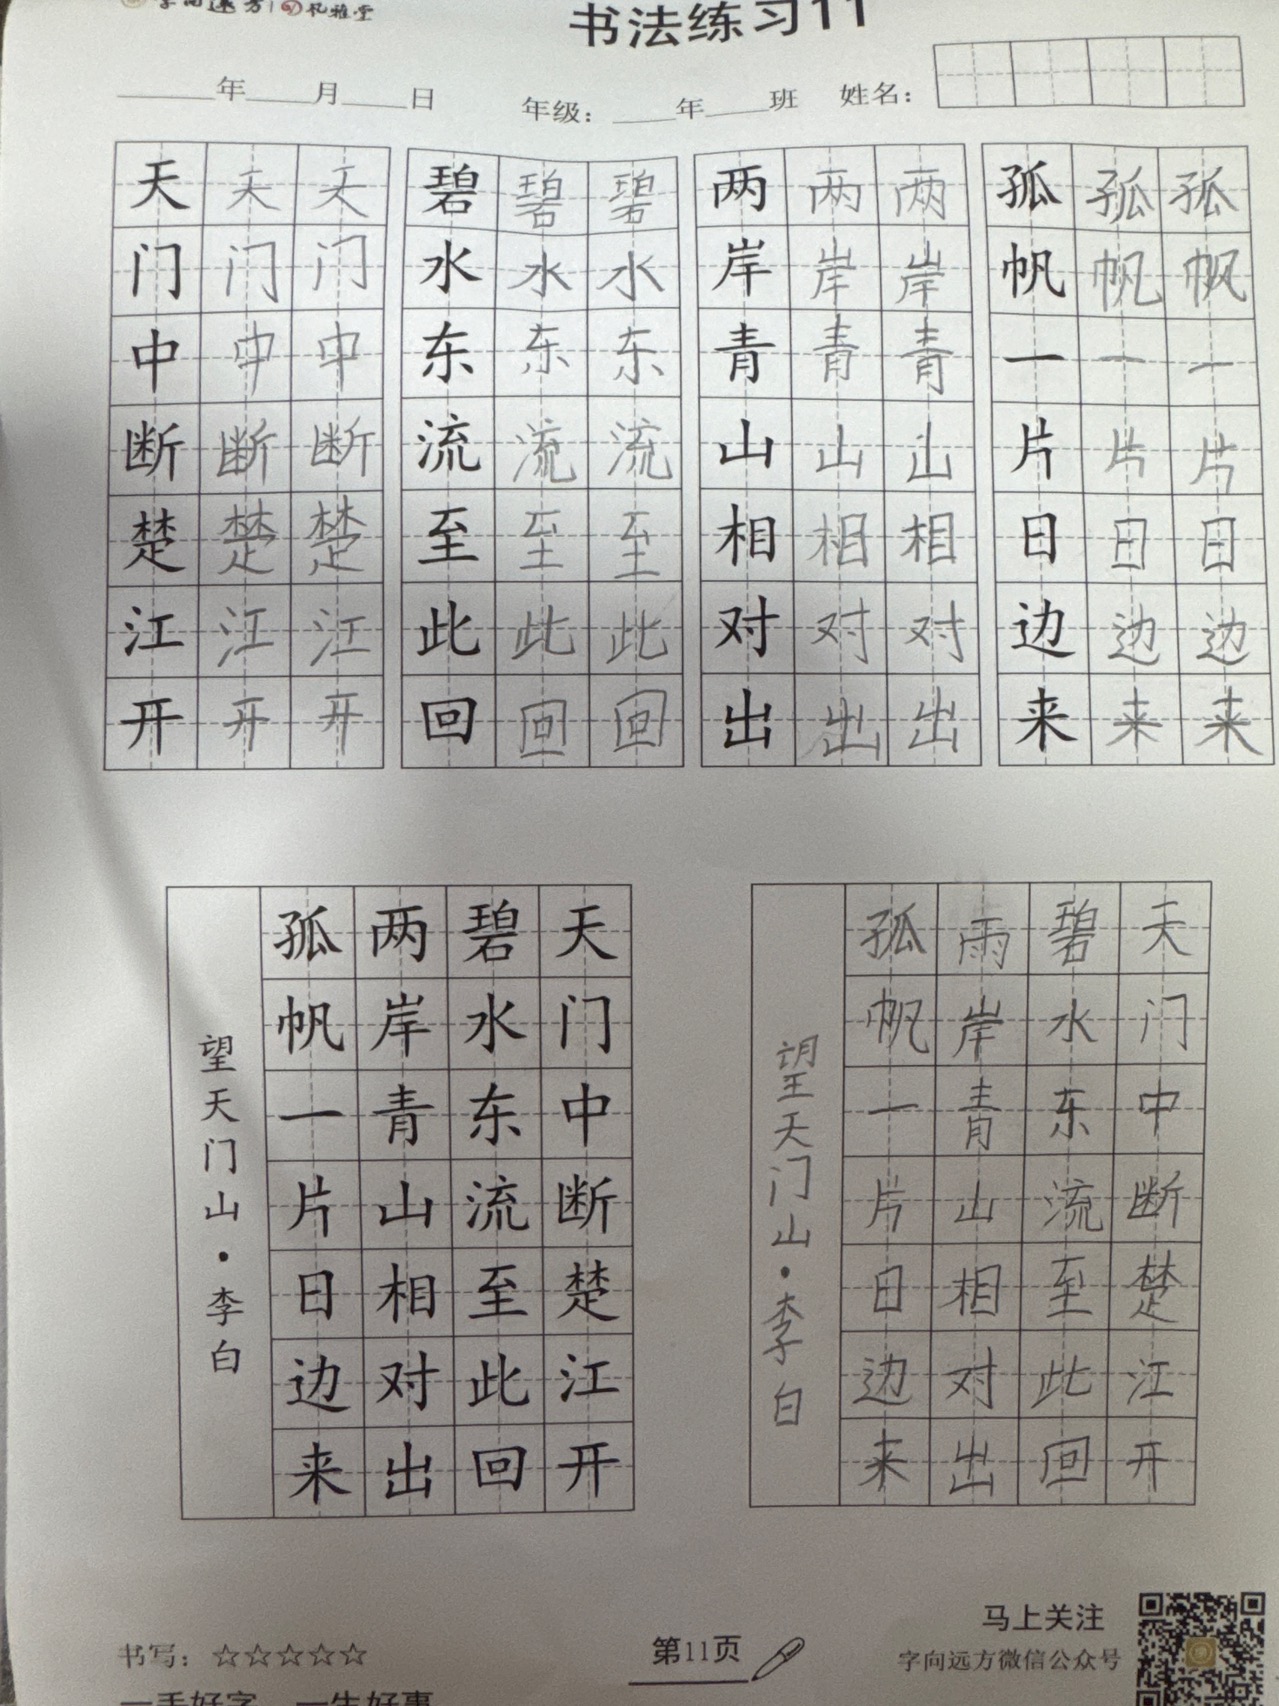 字向远方 礼雅堂
书法练习11
年 月 日 年级： 年 班 姓名：
天天天 碧碧碧 两两两 孤孤孤
门门门 水水水 岸岸岸 帆帆帆
中中中 东东东 青青青 一一一
断断断 流流流 山山山 片片片
楚楚楚 至至至 相相相 日日日
江江江 此此此 对对对 边边边
开开开 回回回 出出出 来来来
天门中断楚江开
碧水东流至此回
两岸青山相对出
孤帆一片日边来
望天门山·李白
天门中断楚江开
碧水东流至此回
雨岸青山相对出
孤帆一片日边来
望天门山·李白
书写：☆☆☆☆☆
第11页
马上关注
字向远方微信公众号
一手好字 一生好事